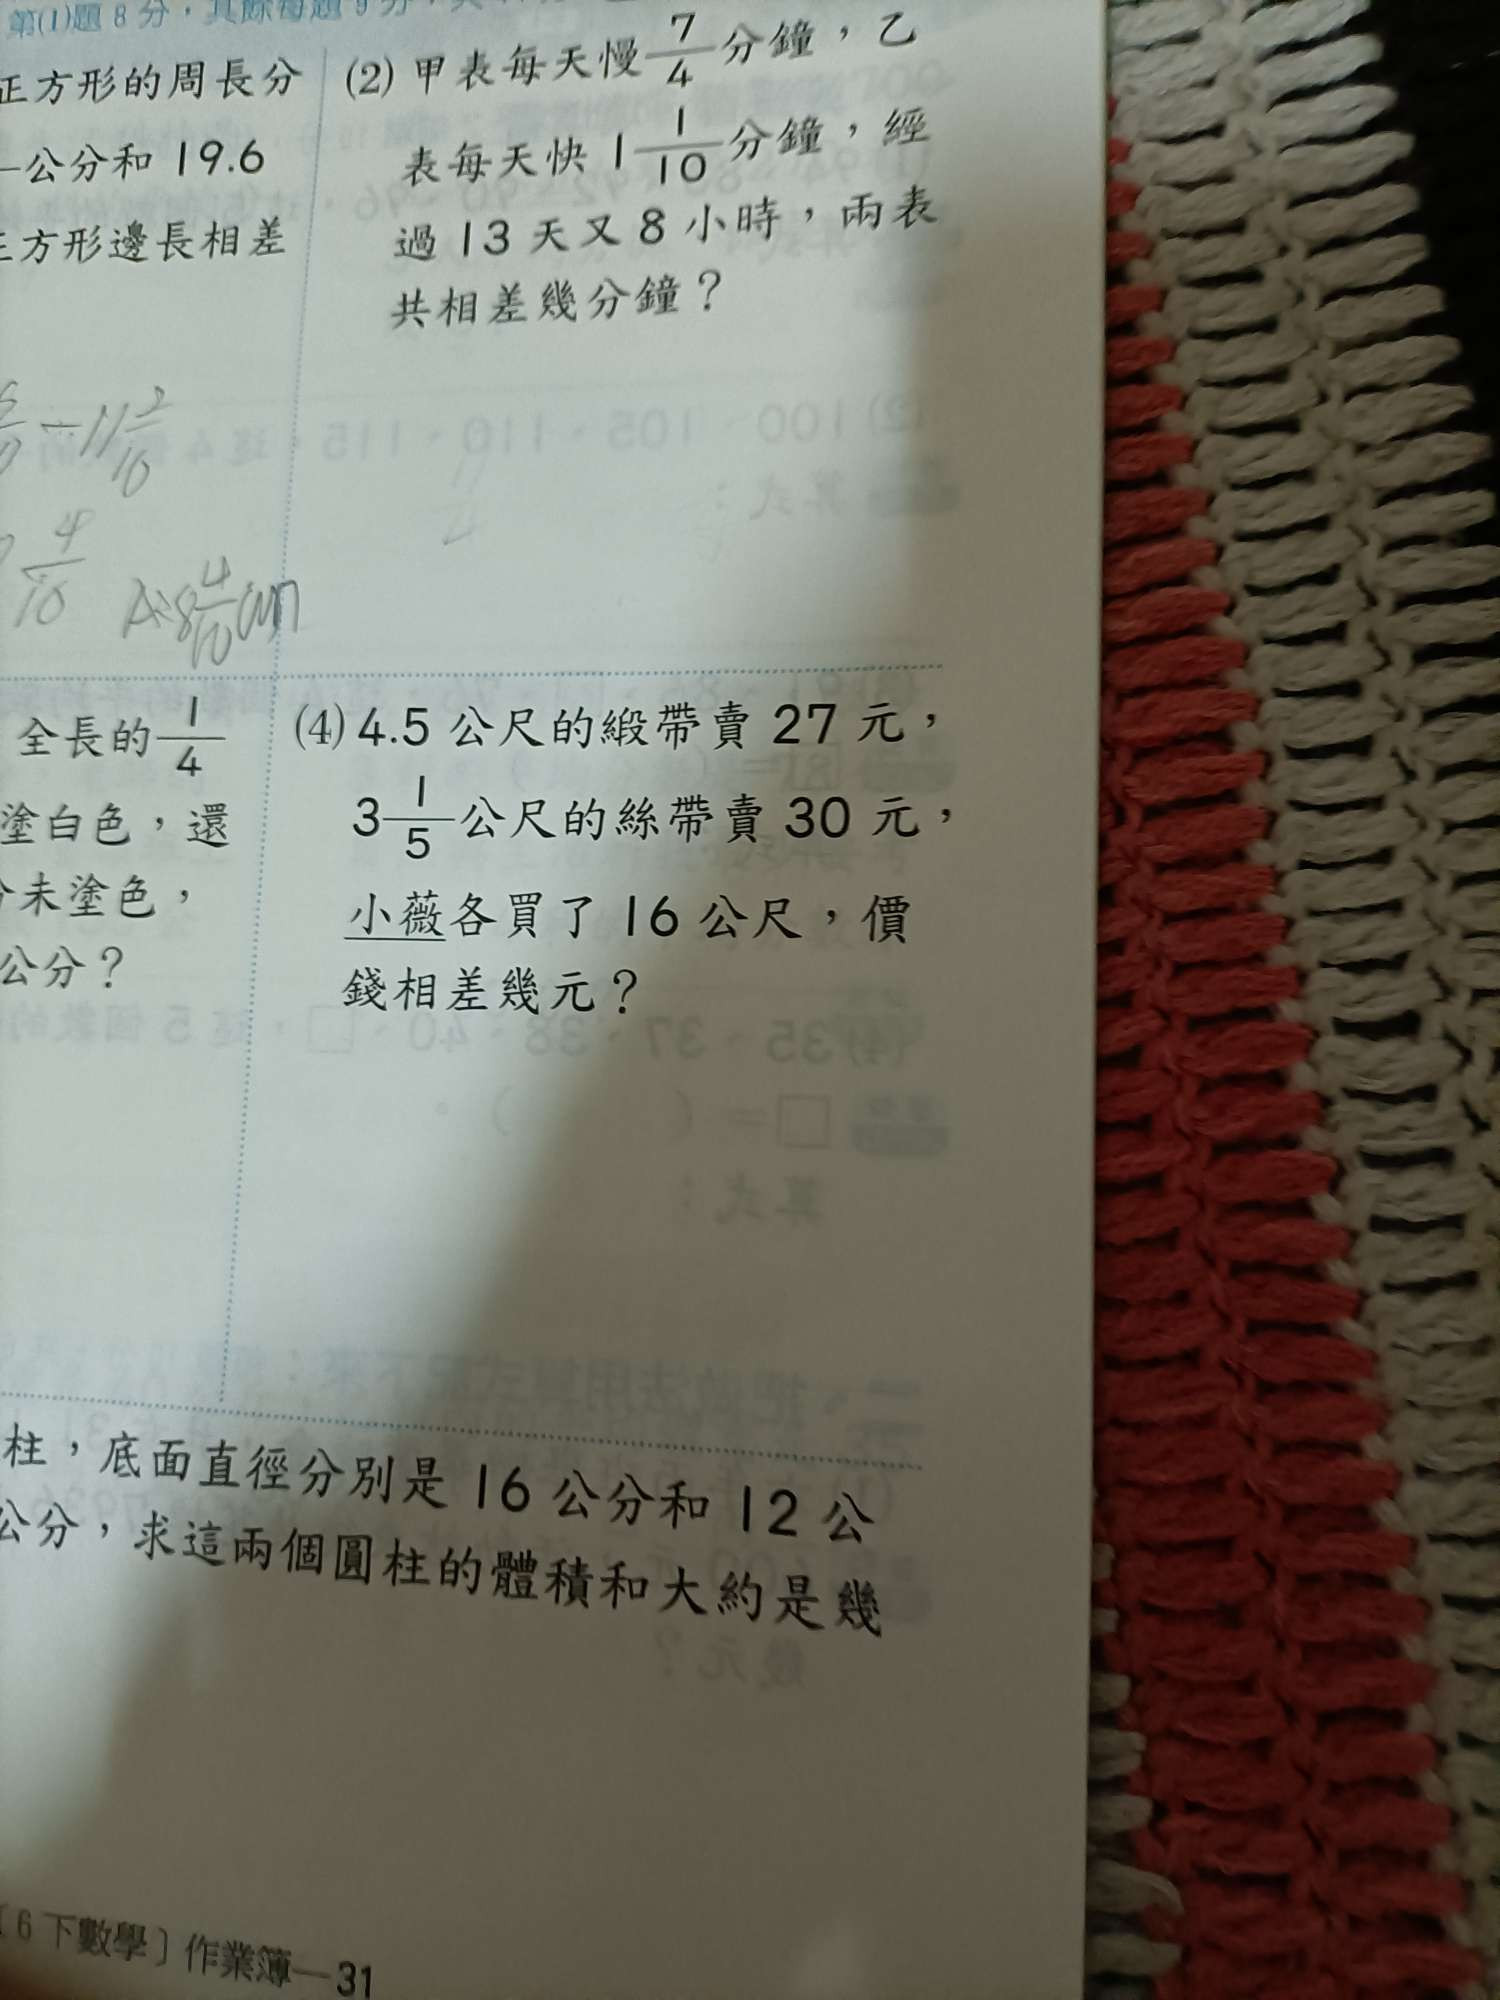 第(1)題 8 分，其餘每題 9 分，共
正方形的周長分
公分和 19.6
正方形邊長相差
(2) 甲表每天慢 7/4 分鐘，乙
表每天快 1 1/10 分鐘，經
過 13 天又 8 小時，兩表
共相差幾分鐘？
4/10 A:8 4/10 cm
全長的 1/4
塗白色，還
未塗色，
公分？
(4) 4.5 公尺的緞帶賣 27 元，
3 1/5 公尺的絲帶賣 30 元，
小薇各買了 16 公尺，價
錢相差幾元？
柱，底面直徑分別是 16 公分和 12 公
公分，求這兩個圓柱的體積和大約是幾
〔6 下數學〕作業簿—31